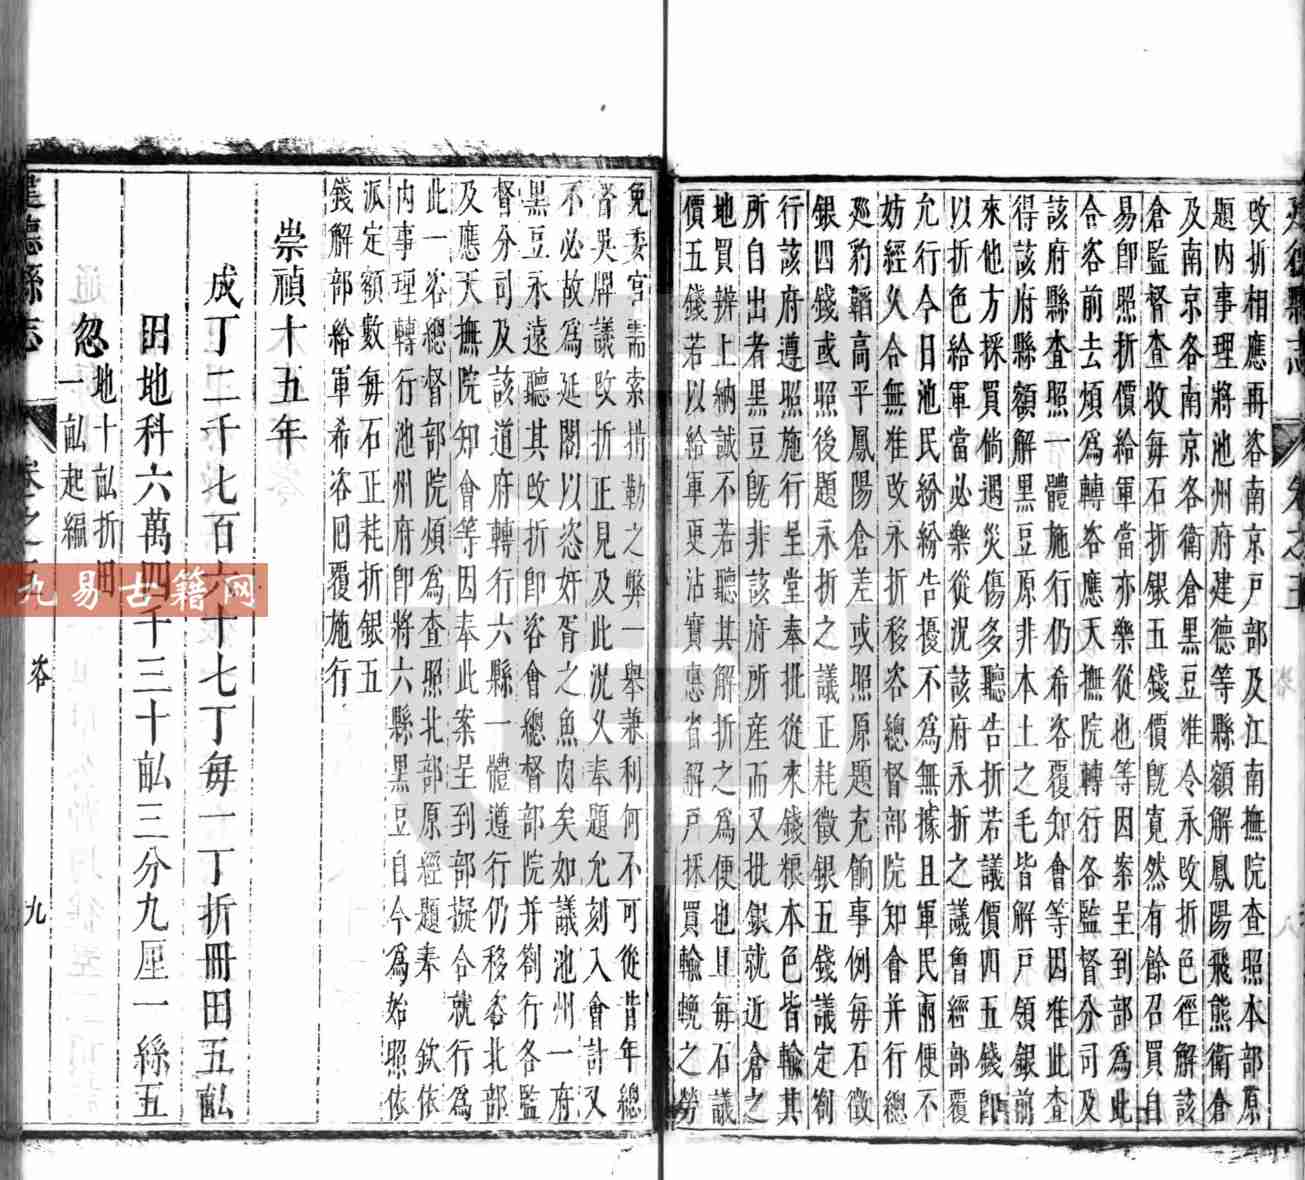 改折相應再咨南京戸部及江南撫院查照本部原
題内事理將池州府建德等縣額解鳳陽飛熊衛倉
及南京各南京各衛倉黑豆准令永改折色徑解該
倉監督查收每石折銀五錢價既寛然有餘召買自
易卽照折價給軍當亦樂從也等因案呈到部為此
合咨前去煩為轉咨應天撫院轉行各監督分司及
該府縣查照一體施行仍希咨覆知會等因准此查
得該府縣額解黑豆原非本土之毛皆解戸領銀前
來他方採買倘遇災傷多聽告折若議價四五錢卽
以折色給軍當必樂從況該府永折之議魯經部覆
允行今日池民紛紛告擾不為無據且軍民兩便不
妨經乆合無准改永折移咨總督部院知會并行總
廵豹韜高平鳳陽倉差或照原題充餉事例每石徵
銀四錢或照後題永折之議正耗徵銀五錢議定劄
行該府遵照施行呈堂奉批從來錢粮本色皆輸其
所自出者黑豆旣非該府所産而又批銀就近倉之
地買辨上納誠不若聽其解折之為便也且每石議
價五錢若以給軍更沾實惠省解戸採買輸輓之勞
免委官需索掯勒之弊一舉兼利何不可從昔年總
督吳牌議改折正見及此況乆奉題允刻入會計又
不必故為延閣以恣奸胥之魚肉矣如議池州一府
黑豆永遠聽其改折卽咨會總督部院并劄行各監
督分司及該道府轉行六縣一體遵行仍移咨北部
及應天撫院知會等因奉此案呈到部擬合就行為
此一咨總督部院煩為查照北部原經題奉 欽依
内事理轉行池州府卽將六縣黑豆自今為始照依
派定額數每石正耗折銀五
錢解部給軍希咨囘覆施行
崇禎十五年
成丁二千七百六十七丁每一丁折冊田五畝
田地科六萬四千三十畝三分九厘一絲五
忽 地十畝折田
一畝起編
建德縣志 卷之五 咨 九